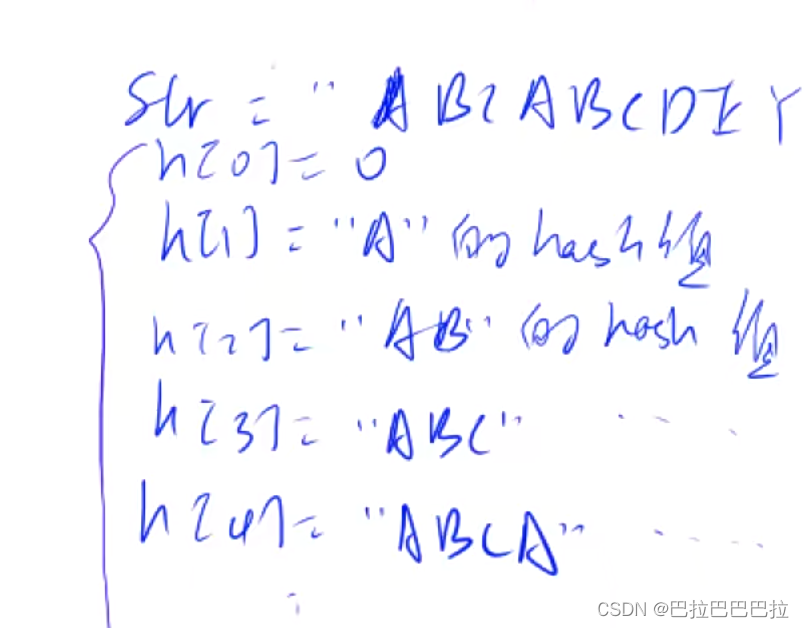 Str = "ABCABCDEY
h[0] = 0
h[1] = "A" 的 hash 值
h[2] = "AB" 的 hash 值
h[3] = "ABC" ....
h[4] = "ABCA" ....
CSDN @巴拉巴巴巴拉